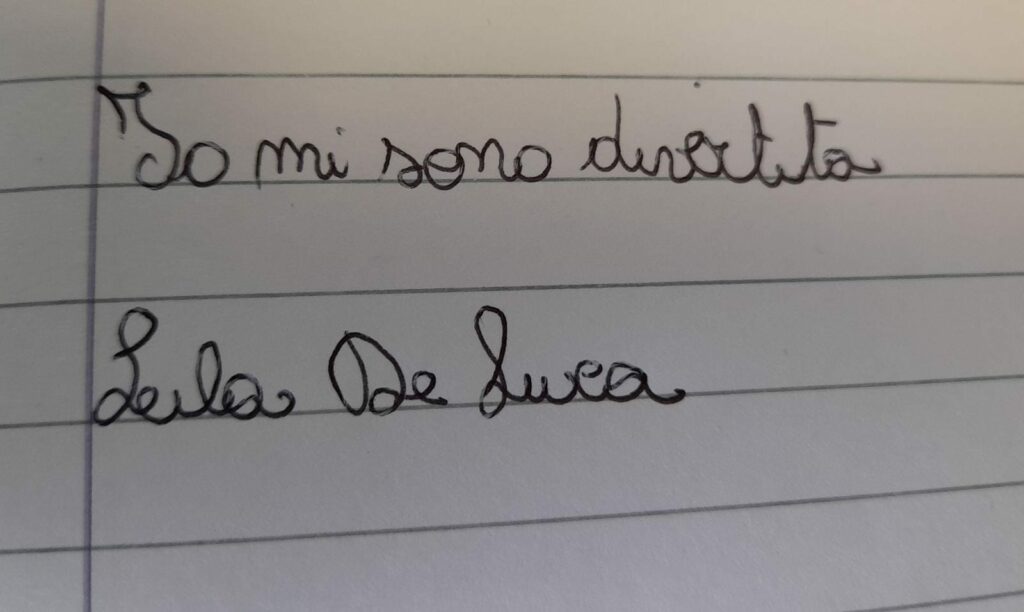 Io mi sono divertita
Leila De Luca